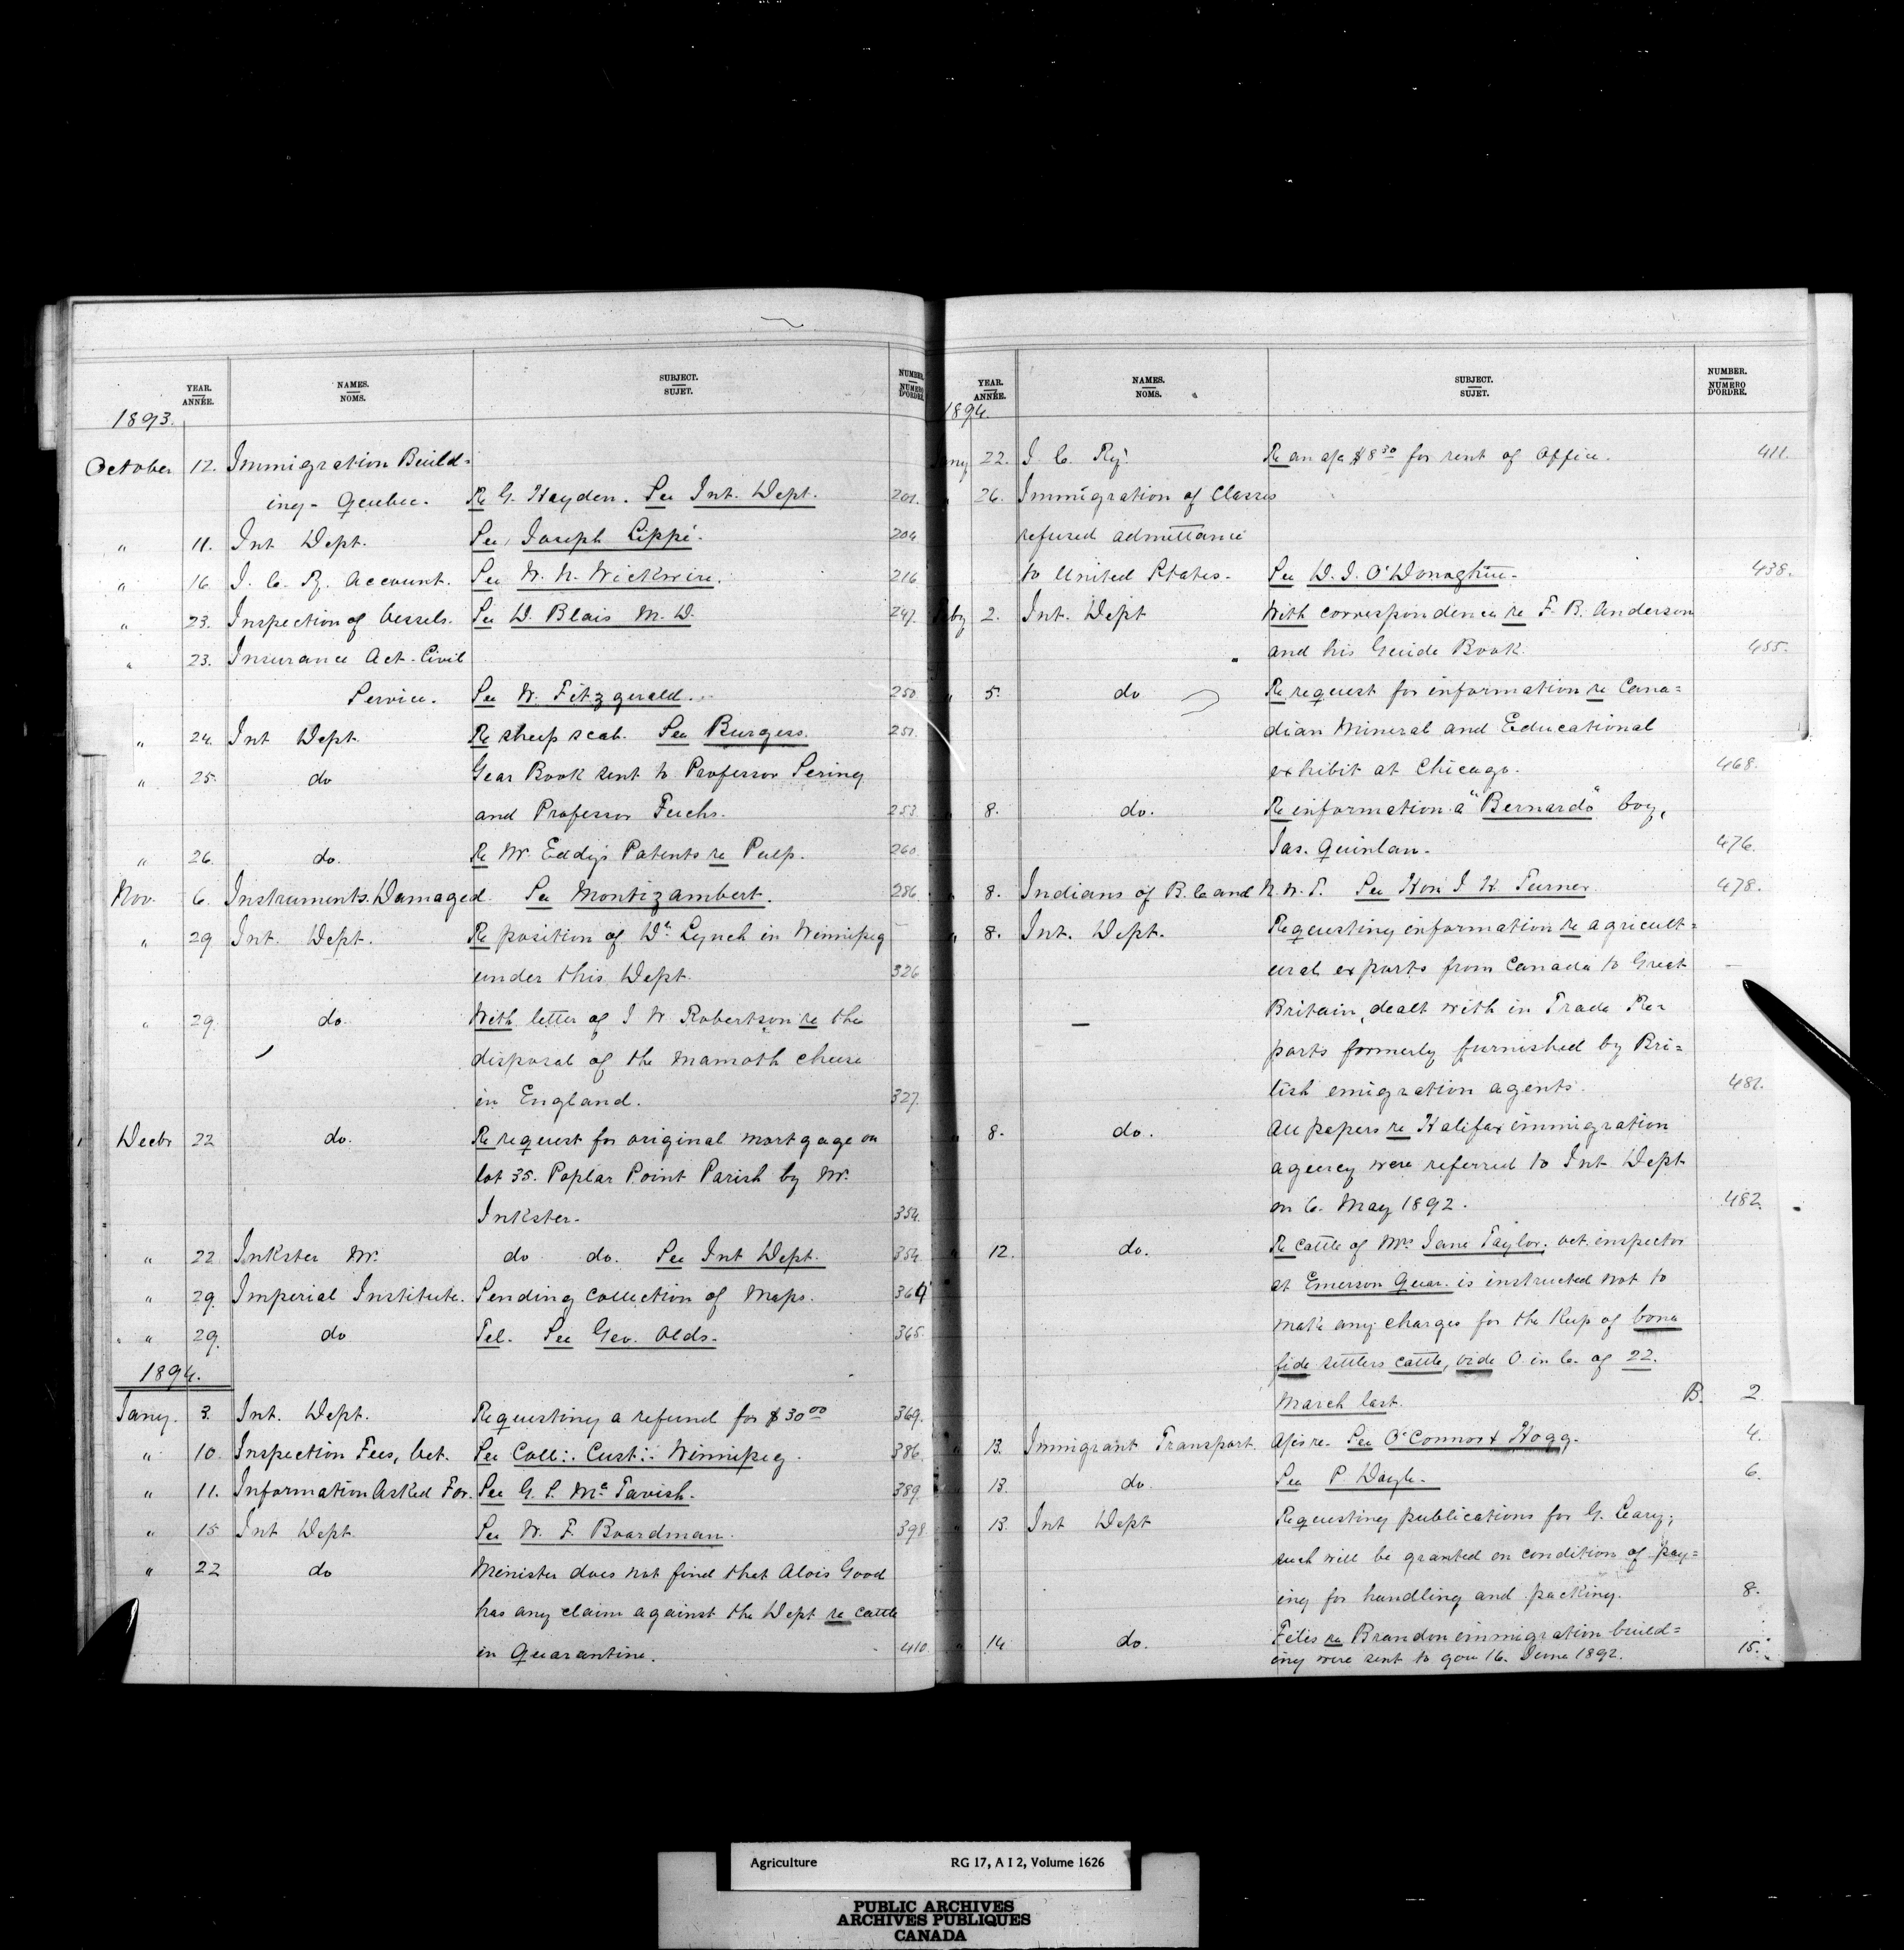 YEAR.
ANNÉE.
NAMES.
NOMS.
SUBJECT.
SUJET.
NUMBER.
NUMERO
D'ORDRE.
1893.
October 12. Immigration Build=
ing - Quebec. Re G. Hayden. See Int. Dept. 201.
" 11. Int Dept. See Joseph Lippé. 204
" 16 I. C. Ry. Account. See W. N. Wickwire. 216
" 23. Inspection of Vessels. See D. Blais M. D. 247.
" 23. Insurance Act - Civil
Service. See W. Fitzgerald. 250
" 24. Int Dept. Re sheep scab. See Burgess. 251.
" 25. do Year Book sent to Professor Sering
and Professor Fuchs. 253
" 26. do. Re Mr. Eddy's Patents re Pulp. 260
Nov. 6. Instruments Damaged. See Montizambert. 286
" 29 Int. Dept. Re position of Dr. Lynch in Winnipeg
under this Dept. 326
" 29. do. With letter of J W. Robertson re the
disposal of the Mamoth cheese
in England. 327.
Decbr 22 do. Re request for original mortgage on
lot 35. Poplar Point Parish by W.
Inkster. 354.
" 22 Inkster W. do do. See Int Dept. 354.
" 29. Imperial Institute. Sending collection of Maps. 364
" 29. do Tel. See Geo. Olds. 365.
1894.
Jany. 3. Int. Dept. Requesting a refund for $30 00 369.
" 10. Inspection Fees, Vet. See Coll:. Cust:. Winnipeg. 386
" 11. Information Asked For. See G. S. Mc Tavish. 389.
" 15 Int Dept. See W. F. Boardman. 398
" 22 do Minister does not find that Alois Good
has any claim against the Dept re cattle
in Quarantine. 410.
YEAR.
ANNÉE.
NAMES.
NOMS.
SUBJECT.
SUJET.
NUMBER.
NUMERO
D'ORDRE.
1894.
Jany 22. I. C. Ry. Re an a/c $8 30 for rent of Office. 411.
26. Immigration of Classes
refused admittance
to United States. See D. J. O'Donoghue. 438.
Feby 2. Int. Dept With correspondence re F. B. Anderson
and his Guide Book. 455.
" 5. do Re request for information re Cana=
dian Mineral and Educational
exhibit at Chicago. 468.
8. do. Re information a "Bernardo" boy,
Jas. Quinlan. 476.
" 8. Indians of B. C and N. W. T. See Hon J. H. Turner. 478.
" 8. Int. Dept. Requesting information re agricult=
ural exports from Canada to Great
Britain, dealt with in Trade Re=
ports formerly furnished by Bri=
tish emigration agents. 481.
" 8. do. All papers re Halifax immigration
agency were referred to Int Dept
on 6. May 1892. 482.
" 12. do. Re cattle of Mrs Jane Taylor, vet. inspector
at Emerson Quar. is instructed not to
make any charges for the keep of bona
fide settlers cattle, vide O. in C. of 22.
March last. B. 2
" 13. Immigrant Transport. A/cs re. See O'Connor & Hogg. 4.
13. do. See P. Doyle. 6.
13. Int Dept Requesting publications for G. Leary;
such will be granted on condition of pay=
ing for handling and packing. 8.
" 14 do. Files re Brandon immigration build=
ing were sent to you 16. June 1892. 15.
Agriculture RG 17, A I 2, Volume 1626
PUBLIC ARCHIVES
ARCHIVES PUBLIQUES
CANADA